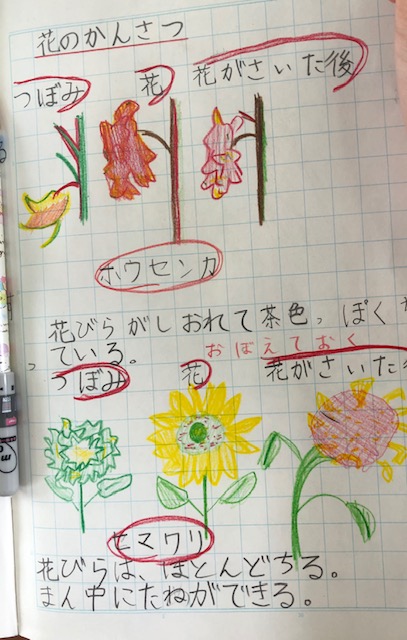 花のかんさつ
つぼみ 花 花がさいた後
ホウセンカ
花びらがしおれて茶色っぽく
っている。
おぼえておく
つぼみ 花 花がさいた
ヒマワリ
花びらは、ほとんどちる。
まん中にたねができる。